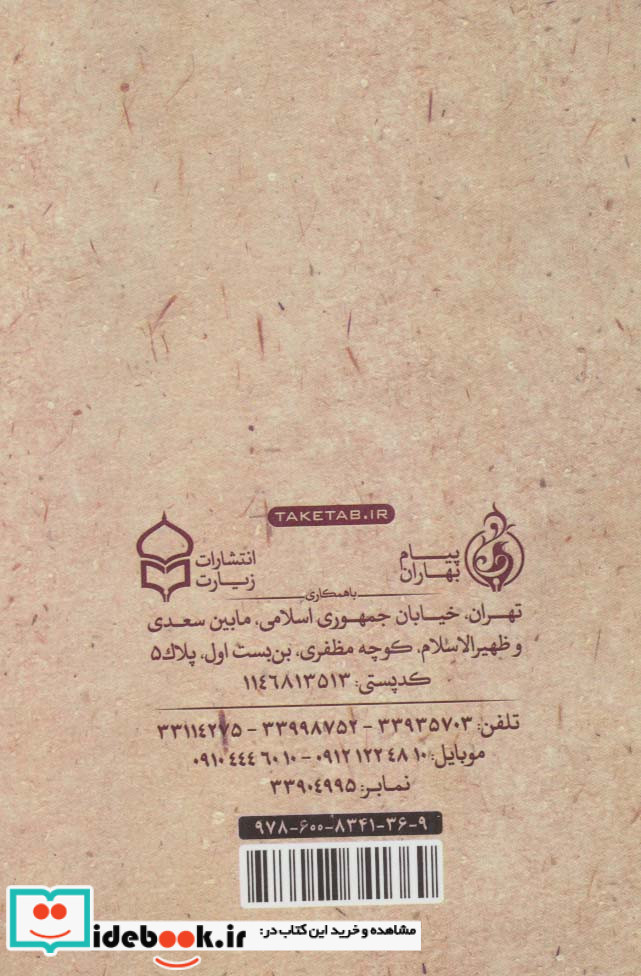 TAKETAB.IR
پیام
بهاران
انتشارات
زیارت
باهمکاری
تهران، خیابان جمهوری اسلامی، مابین سعدی
و ظهیرالاسلام، کوچه مظفری، بن‌بست اول، پلاک۵
کدپستی: ۱۱۴۶۸۱۳۵۱۳
تلفن: ۳۳۹۳۵۷۰۳ - ۳۳۹۹۸۷۵۲ - ۳۳۱۱۴۲۷۵
موبایل: ۱۰ ۴۸ ۱۲۲ ۰۹۱۲ - ۱۰ ۶۰ ۴۴۴ ۰۹۱۰
نمابر: ۳۳۹۰۴۹۹۵
۹۷۸-۶۰۰-۸۳۴۱-۳۶-۹
مشاهده و خرید این کتاب در:
idebook.ir